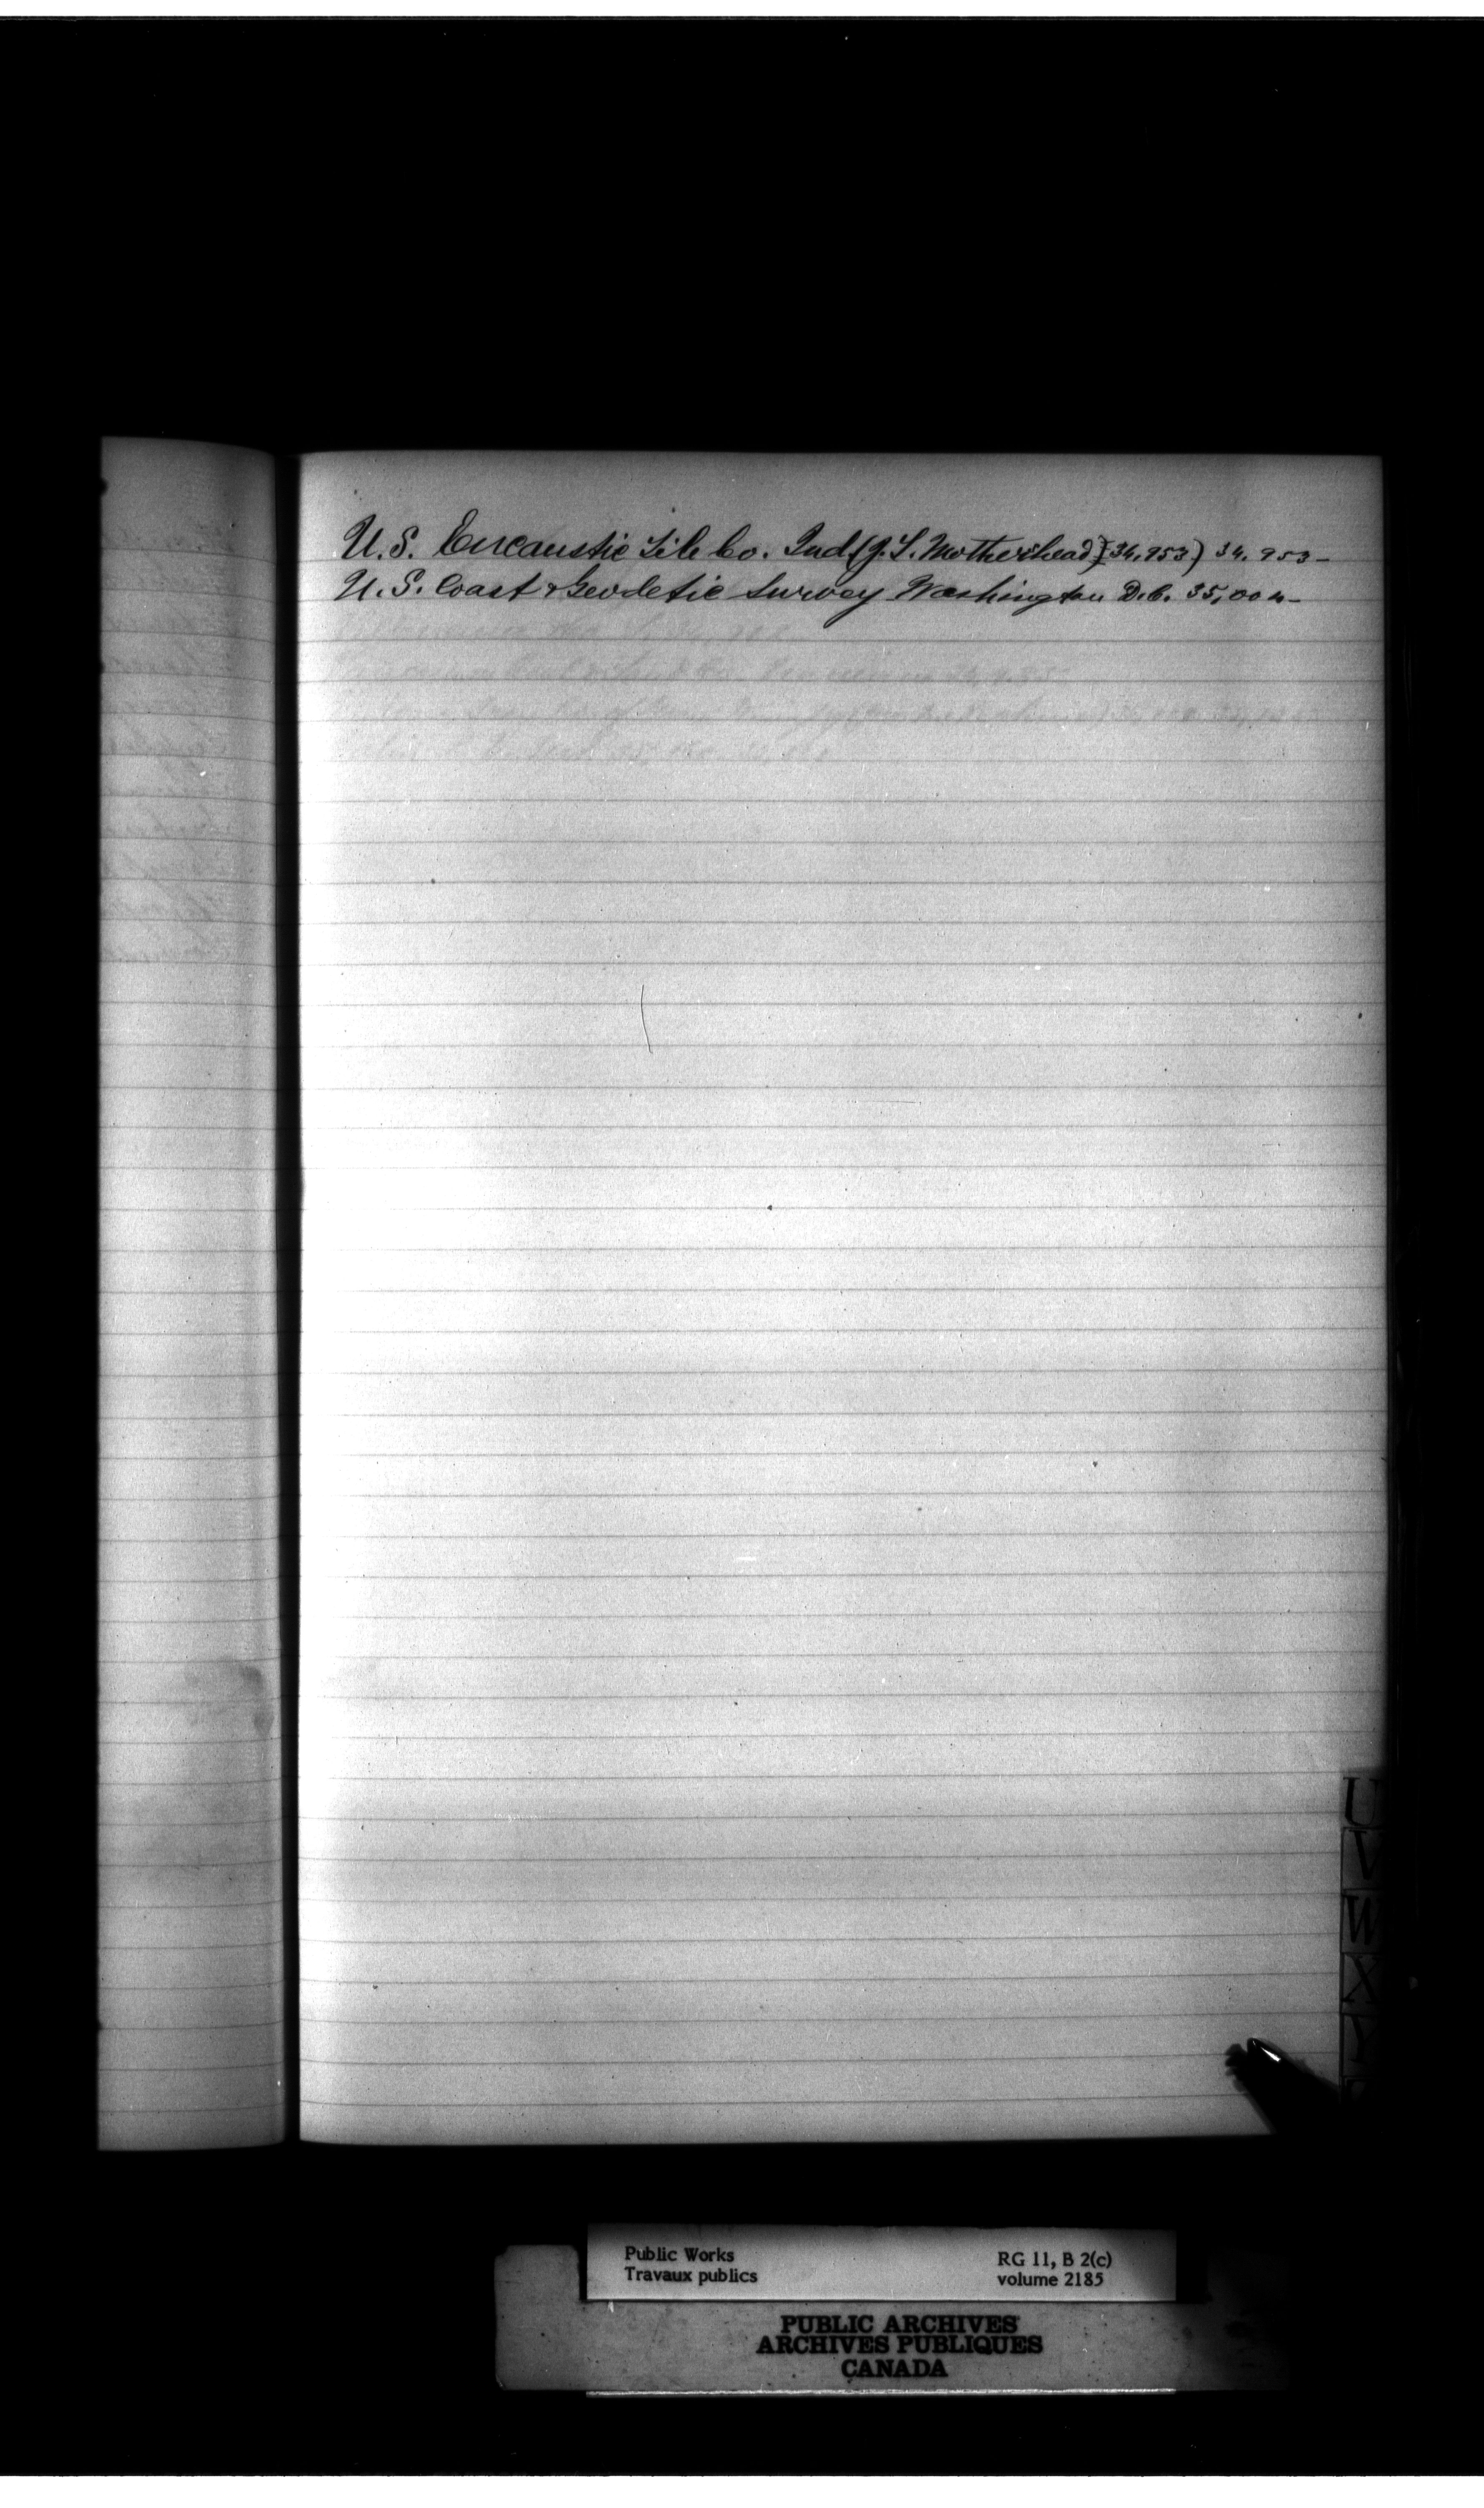 U.S. Encaustic Tile Co. Ind. (J. L. Mothershead) (34,953) 34,953-
U.S. Coast & Geodetic Survey Washington D.C. 35,004-
U
V
W
X
Y
Public Works
Travaux publics
RG 11, B 2(c)
volume 2185
PUBLIC ARCHIVES
ARCHIVES PUBLIQUES
CANADA